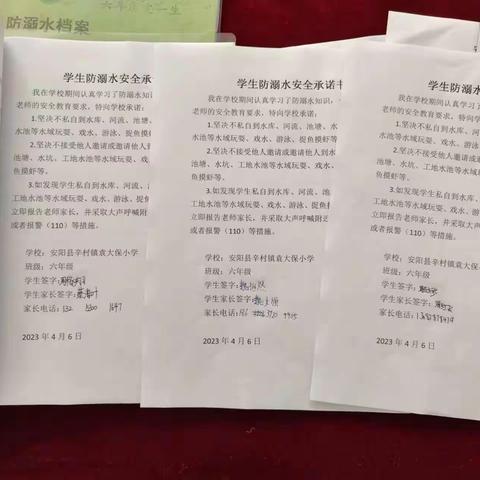 防溺水档案
学生防溺水安全承
我在学校期间认真学习了防溺水知识,
老师的安全教育要求,特向学校承诺:
1.坚决不私自到水库、河流、池塘、
水池等水域玩耍、戏水、游泳、捉鱼摸
2.坚决不接受他人邀请或邀请他人到
池塘、水坑、工地水池等水域玩耍、戏
鱼摸虾等。
3.如发现学生私自到水库、河流、池
工地水池等水域玩耍、戏水、游泳、捉
立即报告老师家长,并采取大声呼喊附近
或者报警(110)等措施。
学校:安阳县辛村镇袁大保小学
班级:六年级
学生签字:
学生家长签字:
家长电话:132
2023 年 4 月 6 日
学生防溺水安全承诺书
我在学校期间认真学习了防溺水知识,
老师的安全教育要求,特向学校承诺:
1.坚决不私自到水库、河流、池塘、水
水池等水域玩耍、戏水、游泳、捉鱼摸虾等
2.坚决不接受他人邀请或邀请他人到水
池塘、水坑、工地水池等水域玩耍、戏水、
鱼摸虾等。
3.如发现学生私自到水库、河流、池塘
工地水池等水域玩耍、戏水、游泳、捉鱼
立即报告老师家长,并采取大声呼喊附近
或者报警(110)等措施。
学校:安阳县辛村镇袁大保小学
班级:六年级
学生签字:
学生家长签字:
家长电话:
2023 年 4 月 6 日
学生防溺水安
我在学校期间认真学习
老师的安全教育要求,特向
1.坚决不私自到水库、
水池等水域玩耍、戏水、游
2.坚决不接受他人邀请
池塘、水坑、工地水池等水
鱼摸虾等。
3.如发现学生私自到水
工地水池等水域玩耍、戏水
立即报告老师家长,并采取
或者报警(110)等措施。
学校:安阳县辛村镇袁大
班级:六年级
学生签字:
学生家长签字:
家长电话:
2023 年 4 月 6 日